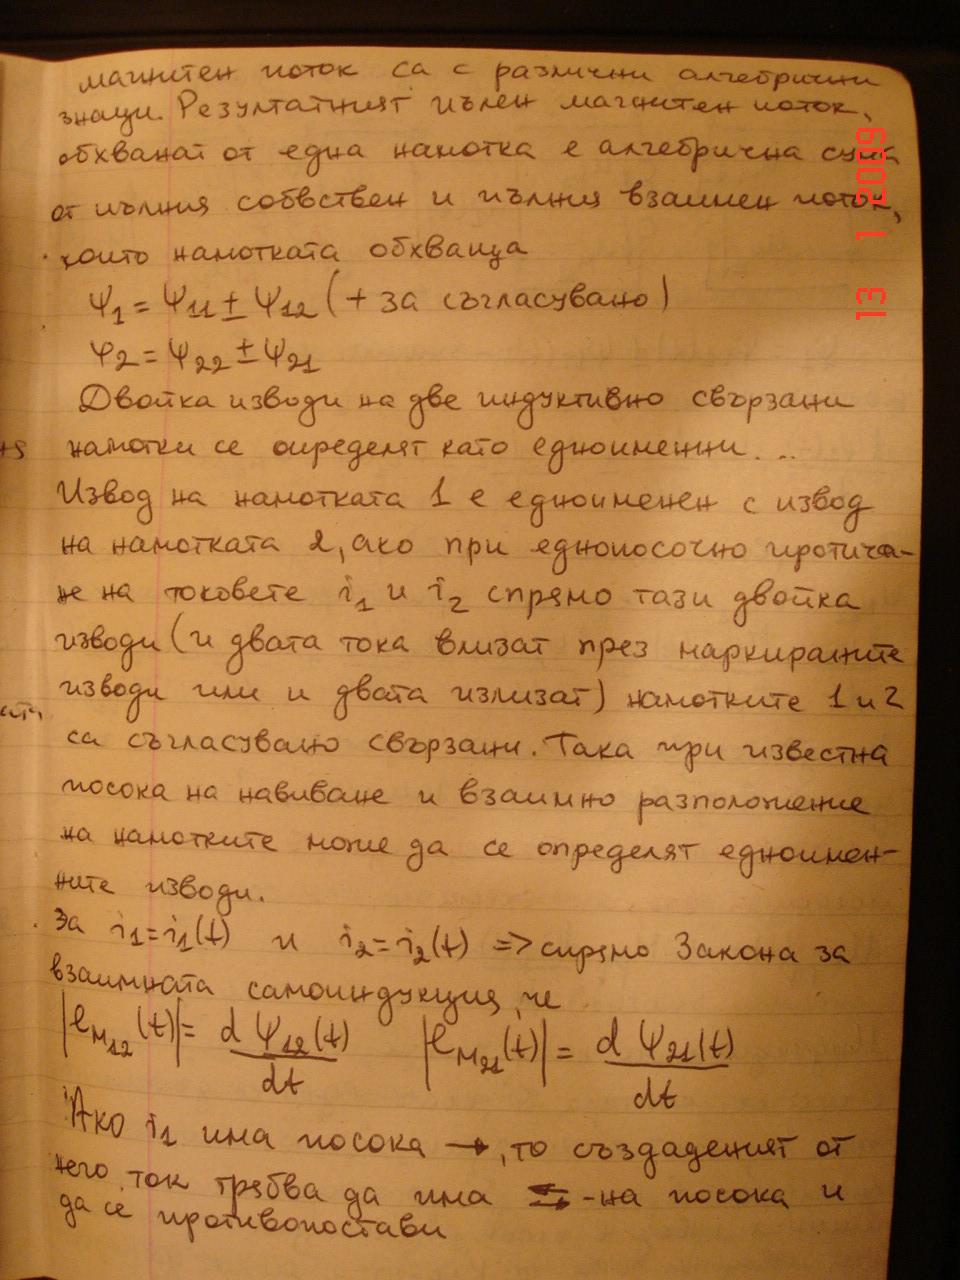 магнитен поток са с различни алгебрични
знаци. Резултатният пълен магнитен поток,
обхванат от една намотка е алгебрична сума
от пълния собвствен и пълния взаимен поток,
които намотката обхваща
Ψ₁ = Ψ₁₁ ± Ψ₁₂ (+ за съгласувано)
Ψ₂ = Ψ₂₂ ± Ψ₂₁
Двойка изводи на две индуктивно свързани
намотки се определят като едноименни. ..
Извод на намотката 1 е едноименен с извод
на намотката 2, ако при еднопосочно протича-
не на токовете i₁ и i₂ спрямо тази двойка
изводи (и двата тока влизат през маркираните
изводи или и двата излизат) намотките 1 и 2
са съгласувано свързани. Така при известна
посока на навиване и взаимно разположение
на намотките може да се определят едноимен-
ните изводи.
За i₁=i₁(t) и i₂=i₂(t) => спрямо Закона за
взаимната самоиндукция, че
|e_M₁₂(t)| = d Ψ₁₂(t)/dt |e_M₂₁(t)| = d Ψ₂₁(t)/dt
Ако i₁ има посока →, то създаденият от
него ток трябва да има -на посока и
да се противопостави
13 1 2009